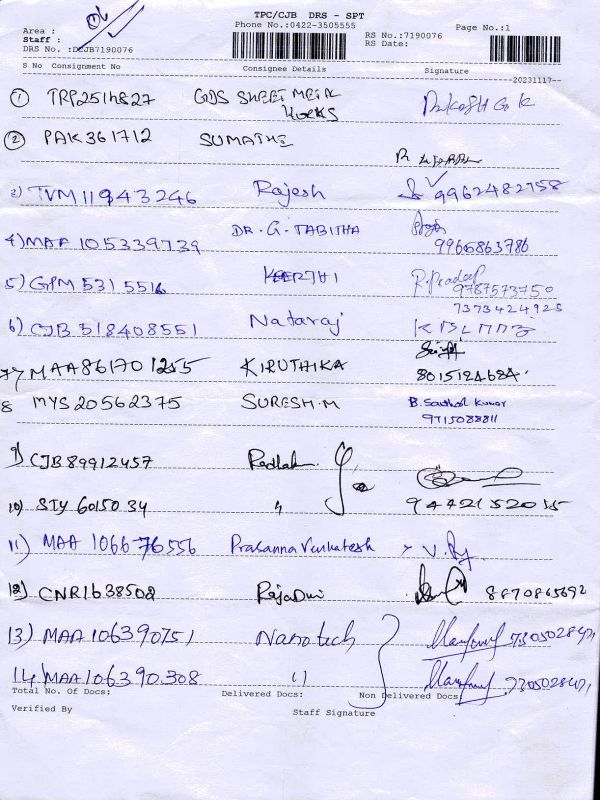 TPC/CJB DRS - SPT
Area : Phone No.:0422-3505555 Page No.:1
Staff : RS No.:7190076
DRS No. :DCJB7190076 RS Date:
S No Consignment No Consignee Details Signature
--20231117--
1 TRP2514827 GDS SHEET METAL
WORKS
2 PAK361712 SUMATHI
3) TVM11943246 Rajesh 9962482758
4) MAA 105339739 DR. G. TABITHA
9966863786
5) GPM 5315516 KARTHI R. Pradeep
9787573750
7373424925
6) CJB 518408551 Nataraj
7) MAA861701255 KIRUTHIKA 8015124684
8 MYS 20562375 SURESH.M B. Santhosh Kumar
9715088811
9) CJB 89912457
10) STY 6015034 " 9442152015
11) MAA 106676556 Prasanna Venkatesh
12) CNR1638508 8870865692
13) MAA106390751 Nanotech 7305028471
14) MAA106390308 " 7305028471
Total No. Of Docs: Delivered Docs: Non Delivered Docs:
Verified By Staff Signature